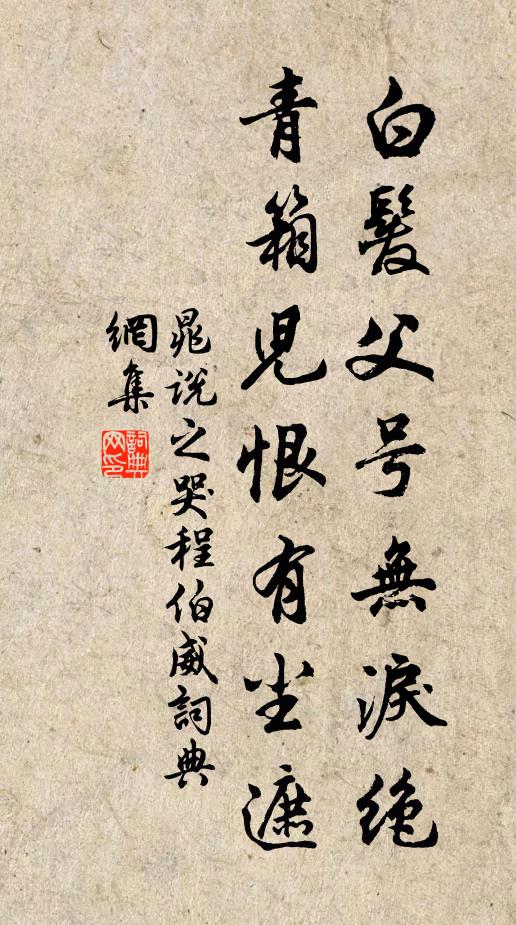 白髮父号無淚絶
青箱児恨有尘遮
晁說之哭程伯威詞典
網集
詞典
网印